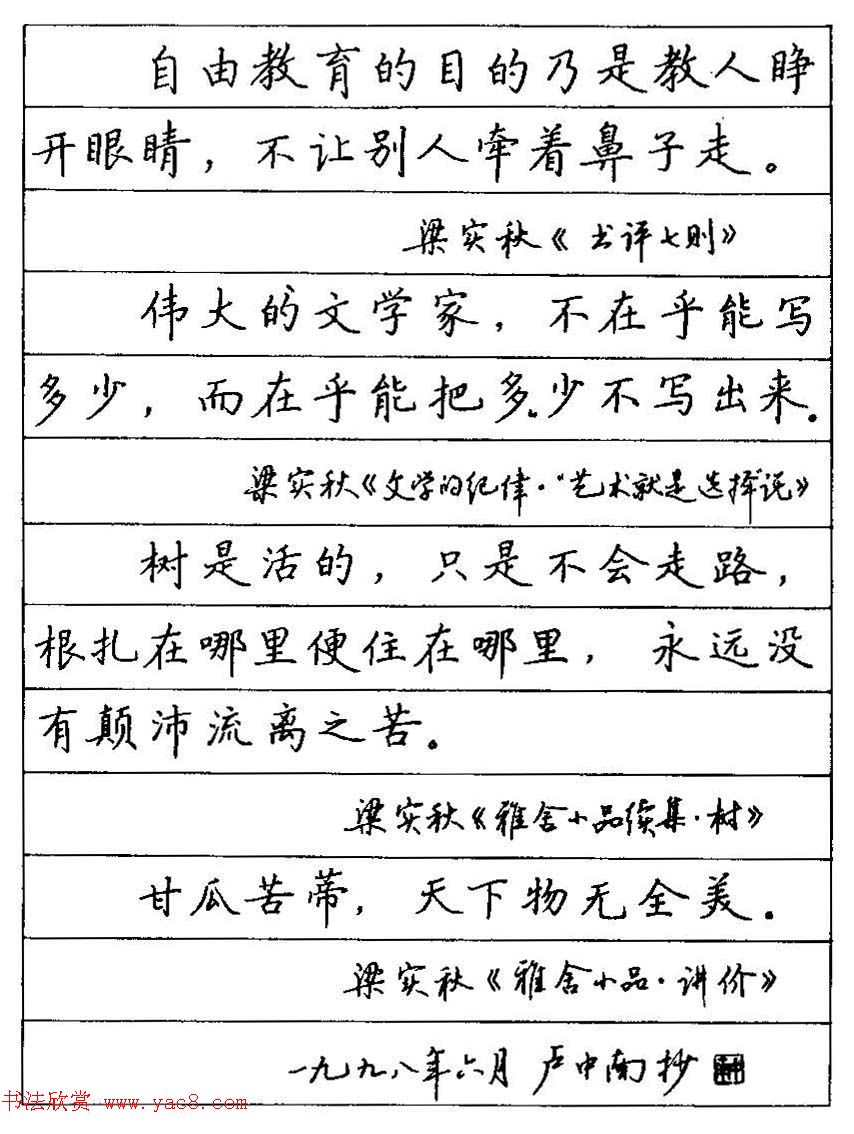 自由教育的目的乃是教人睁
开眼睛，不让别人牵着鼻子走。
梁实秋《书评七则》
伟大的文学家，不在乎能写
多少，而在乎能把多少不写出来。
梁实秋《文学的纪律·"艺术就是选择"说》
树是活的，只是不会走路，
根扎在哪里便住在哪里，永远没
有颠沛流离之苦。
梁实秋《雅舍小品续集·树》
甘瓜苦蒂，天下物无全美。
梁实秋《雅舍小品·讲价》
一九九八年六月 卢中南抄
书法欣赏 www.yac8.com